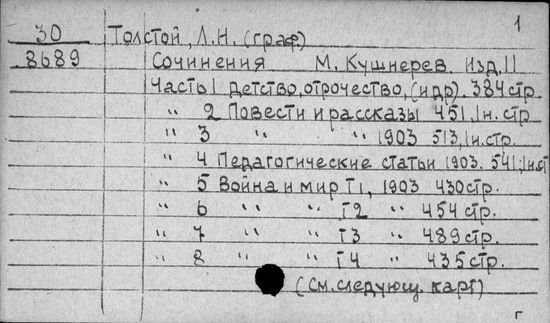 1
30 Толстой, Л.Н. (граф)
8689 Сочинения М. Кушнерев. Изд. 11
Часть 1 детство, отрочество, (и др). 384 стр.
" 2 Повести и рассказы 451, 1 н. стр
" 3 " " 1903 513, 1 н. стр.
" 4 Педагогические статьи 1903. 541, 1 н. ст
" 5 Война и мир Т 1, 1903 430 стр.
" 6 " " Т 2 " 454 стр.
" 7 " " Т 3 " 489 стр.
" 8 " " Т 4 " 435 стр.
(См. следующ. карт)
г